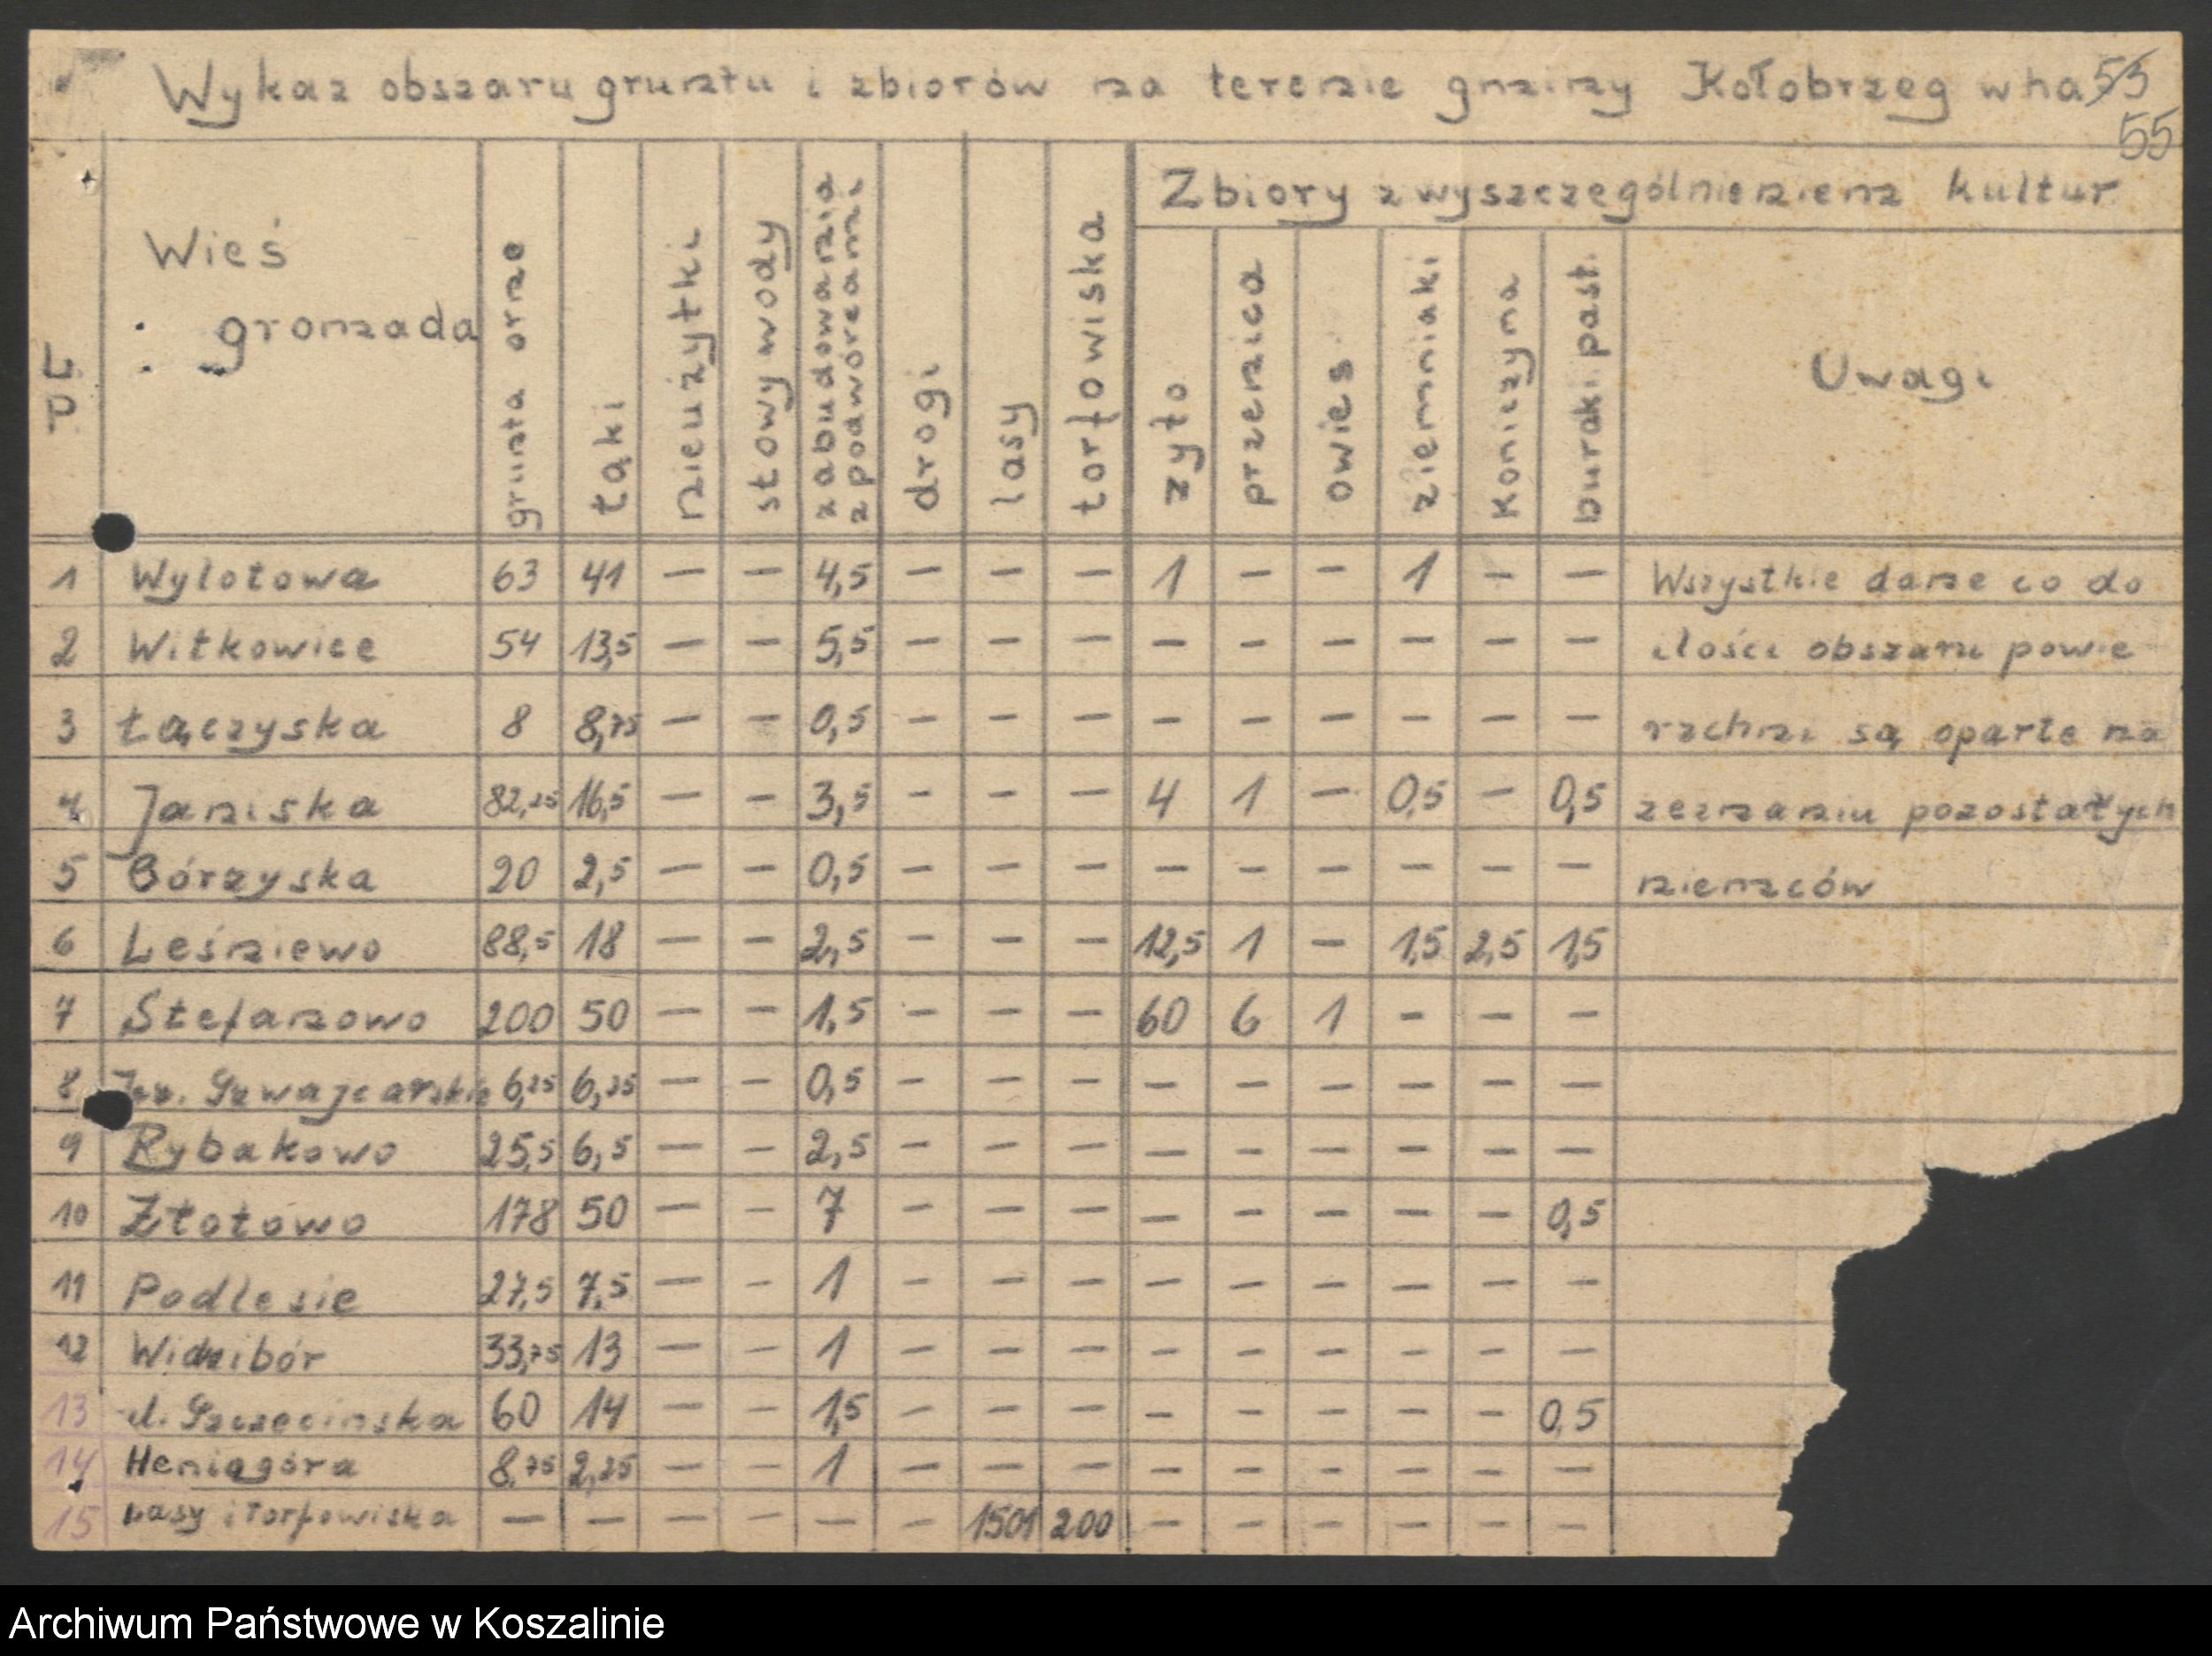 Wykaz obszaru gruntu i zbiorów na terenie gminy Kołobrzeg w ha 53
55
Zbiory z wyszczególnieniem kultur
L.p. Wieś gromada grunta orne łąki nieużytki stowy wody zabudowania z podwórcami drogi lasy torfowiska żyto przenica owies ziemniaki Koniczyna buraki past. Uwagi
1 Wylotowa 63 41 — — 4,5 — — — 1 — — 1 — — Wszystkie dane co do
2 Witkowice 54 13,5 — — 5,5 — — — — — — — — — ilości obszaru powie
3 Łączyska 8 8,75 — — 0,5 — — — — — — — — — rzchni są oparte na
4 Janiska 82,25 16,5 — — 3,5 — — — 4 1 — 0,5 — 0,5 zeznaniu pozostałych
5 Górzyska 20 2,5 — — 0,5 — — — — — — — — — niemców
6 Leśniewo 88,5 18 — — 2,5 — — — 12,5 1 — 1,5 2,5 1,5
7 Stefanowo 200 50 — — 1,5 — — — 60 6 1 — — —
8 Szwajcarskie 6,25 6,25 — — 0,5 — — — — — — — — —
9 Rybakowo 25,5 6,5 — — 2,5 — — — — — — — — —
10 Złotowo 178 50 — — 7 — — — — — — — — 0,5
11 Podlesie 27,5 7,5 — — 1 — — — — — — — — —
12 Widzibór 33,75 13 — — 1 — — — — — — — — —
13 ul. Szczecinska 60 14 — — 1,5 — — — — — — — — 0,5
14 Heniagóra 8,75 2,25 — — 1 — — — — — — — — —
15 Lasy i Torfowiska — — — — — — 1501 200 — — — — — —
Archiwum Państwowe w Koszalinie